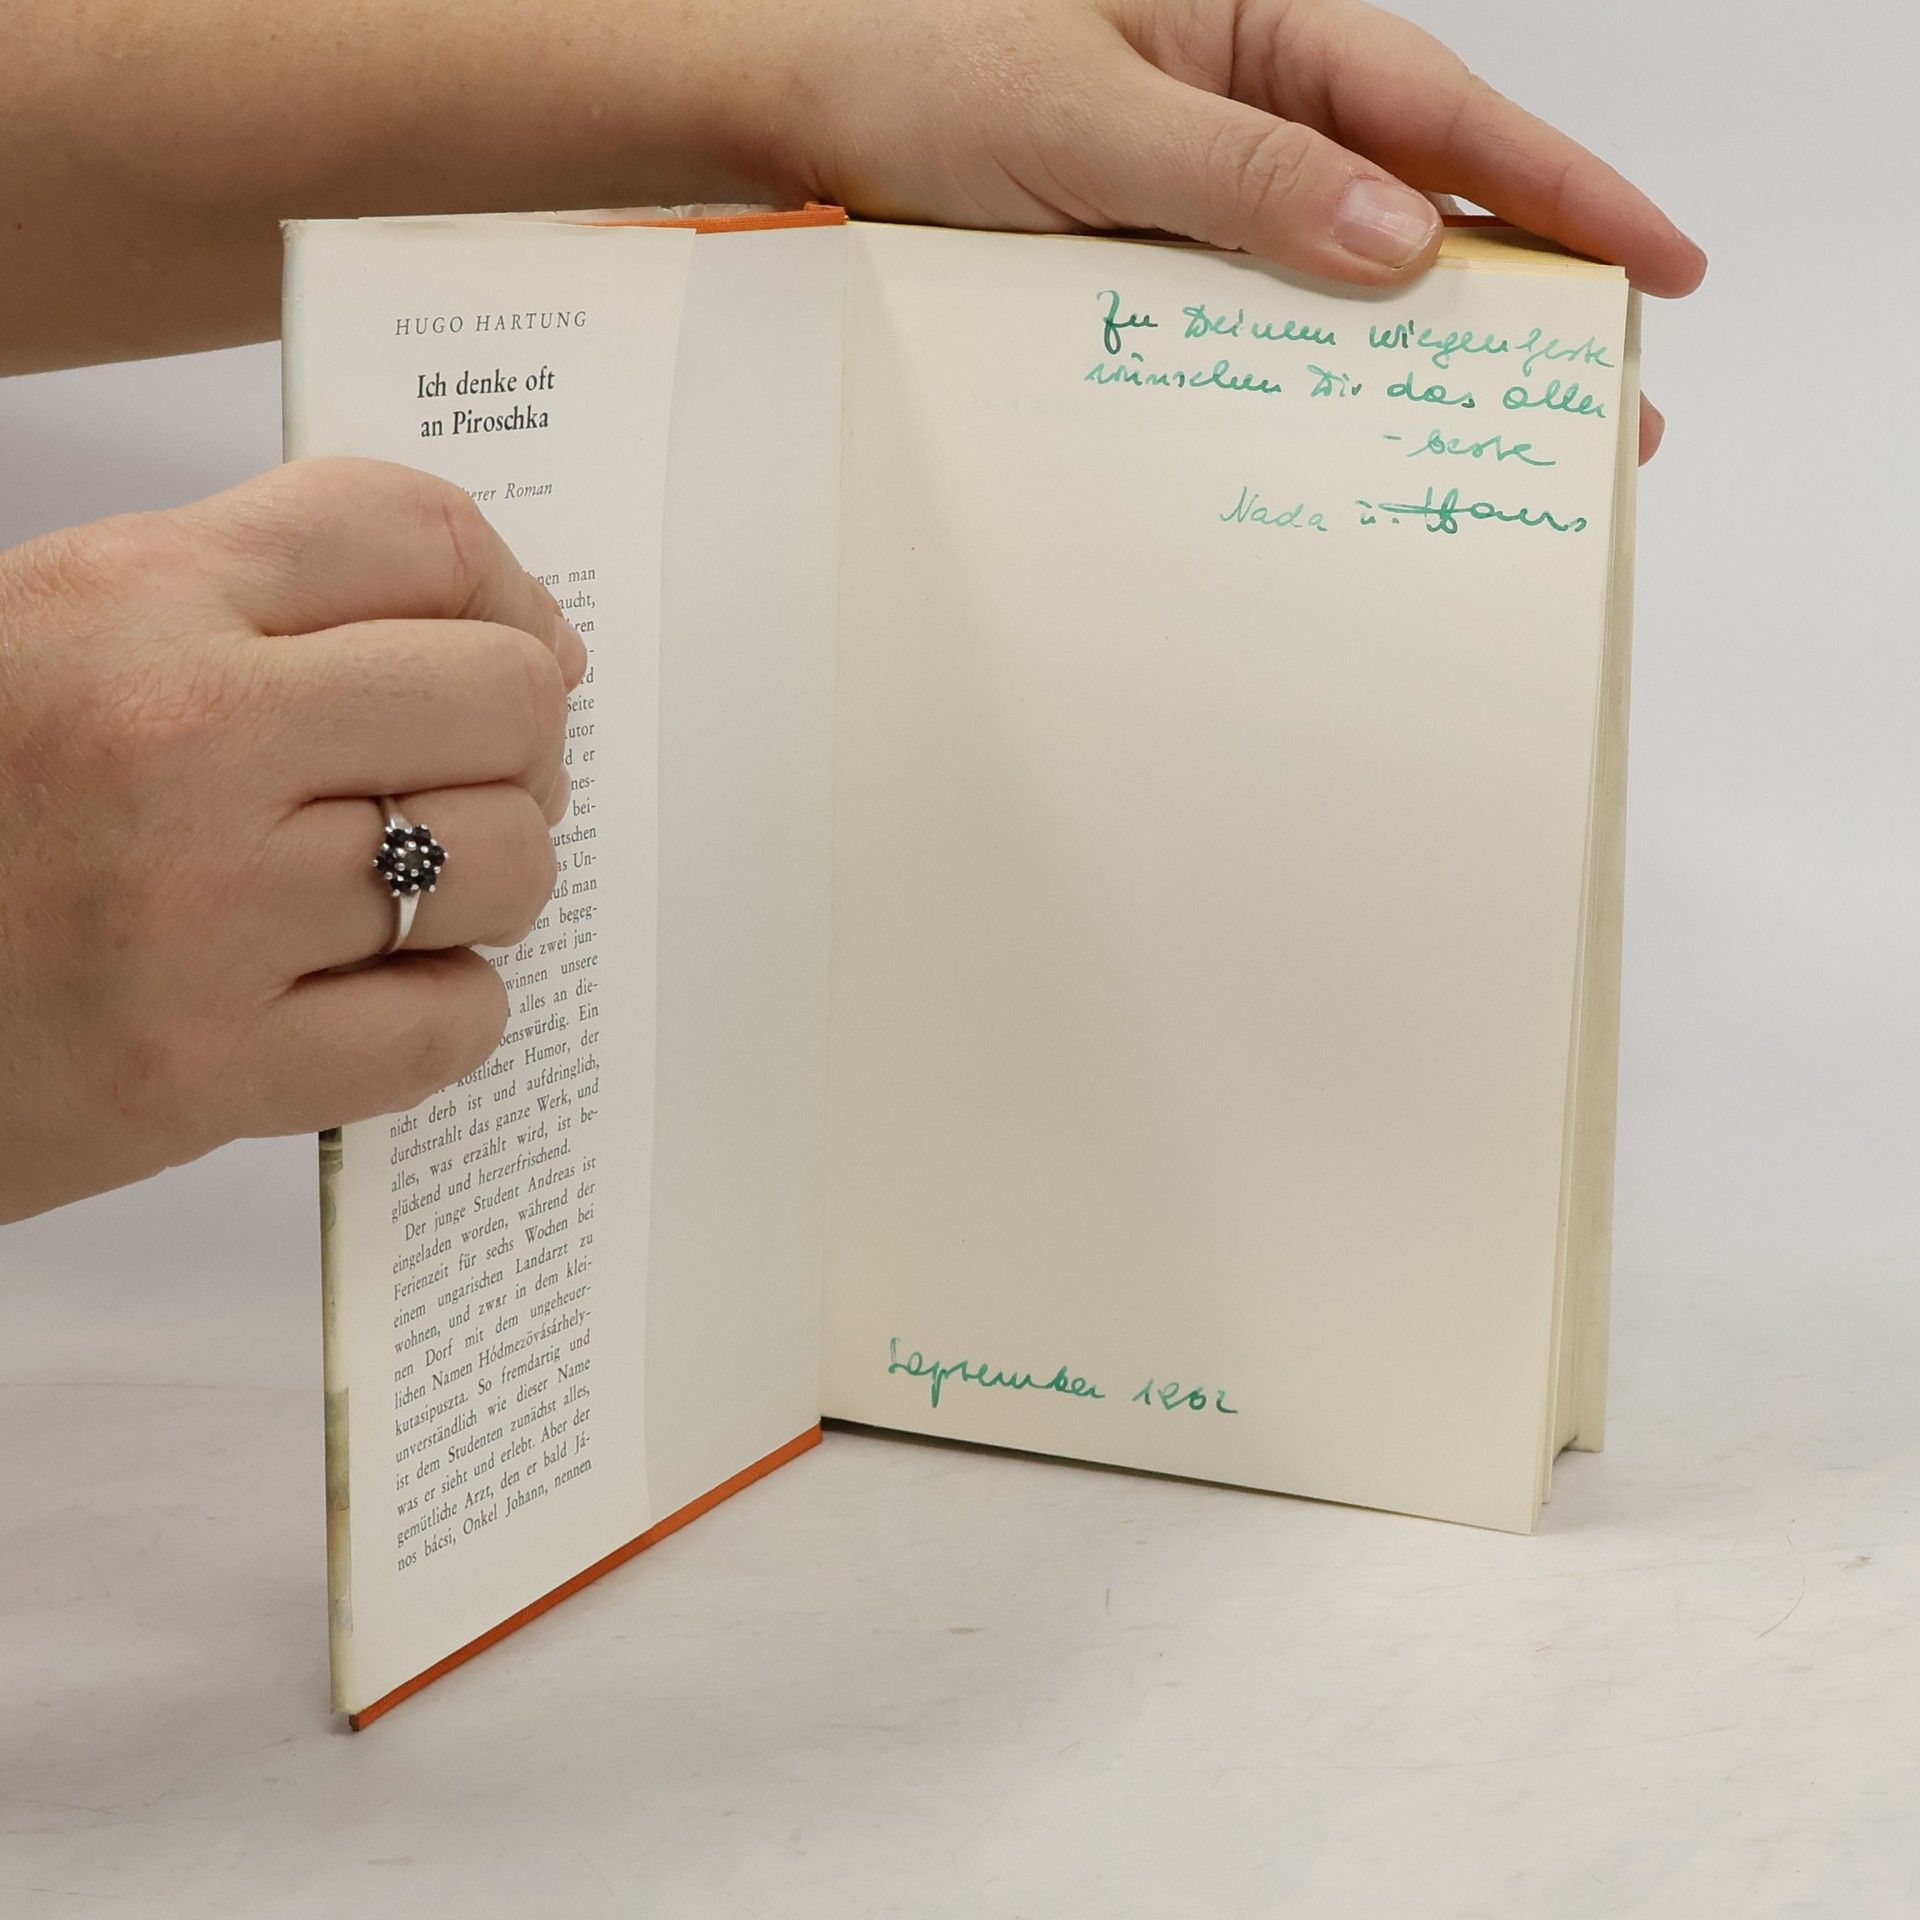 HUGO HARTUNG
Ich denke oft
an Piroschka
Roman
man
Seite
er
bei-
man
begeg-
nur die zwei jun-
unsere
alles an die-
Ein
köstlicher Humor, der
nicht derb ist und aufdringlich,
durchstrahlt das ganze Werk, und
alles, was erzählt wird, ist be-
glückend und herzerfrischend.
Der junge Student Andreas ist
eingeladen worden, während der
Ferienzeit für sechs Wochen bei
einem ungarischen Landarzt zu
wohnen, und zwar in dem klei-
nen Dorf mit dem ungeheuer-
lichen Namen Hódmezövásárhely-
kutasipuszta. So fremdartig und
unverständlich wie dieser Name
ist dem Studenten zunächst alles,
was er sieht und erlebt. Aber der
gemütliche Arzt, den er bald Já-
nos bácsi, Onkel Johann, nennen
Zu Deinem Wiegenfeste
wünschen Dir das aller
- beste
Nada u. Hans
September 1962